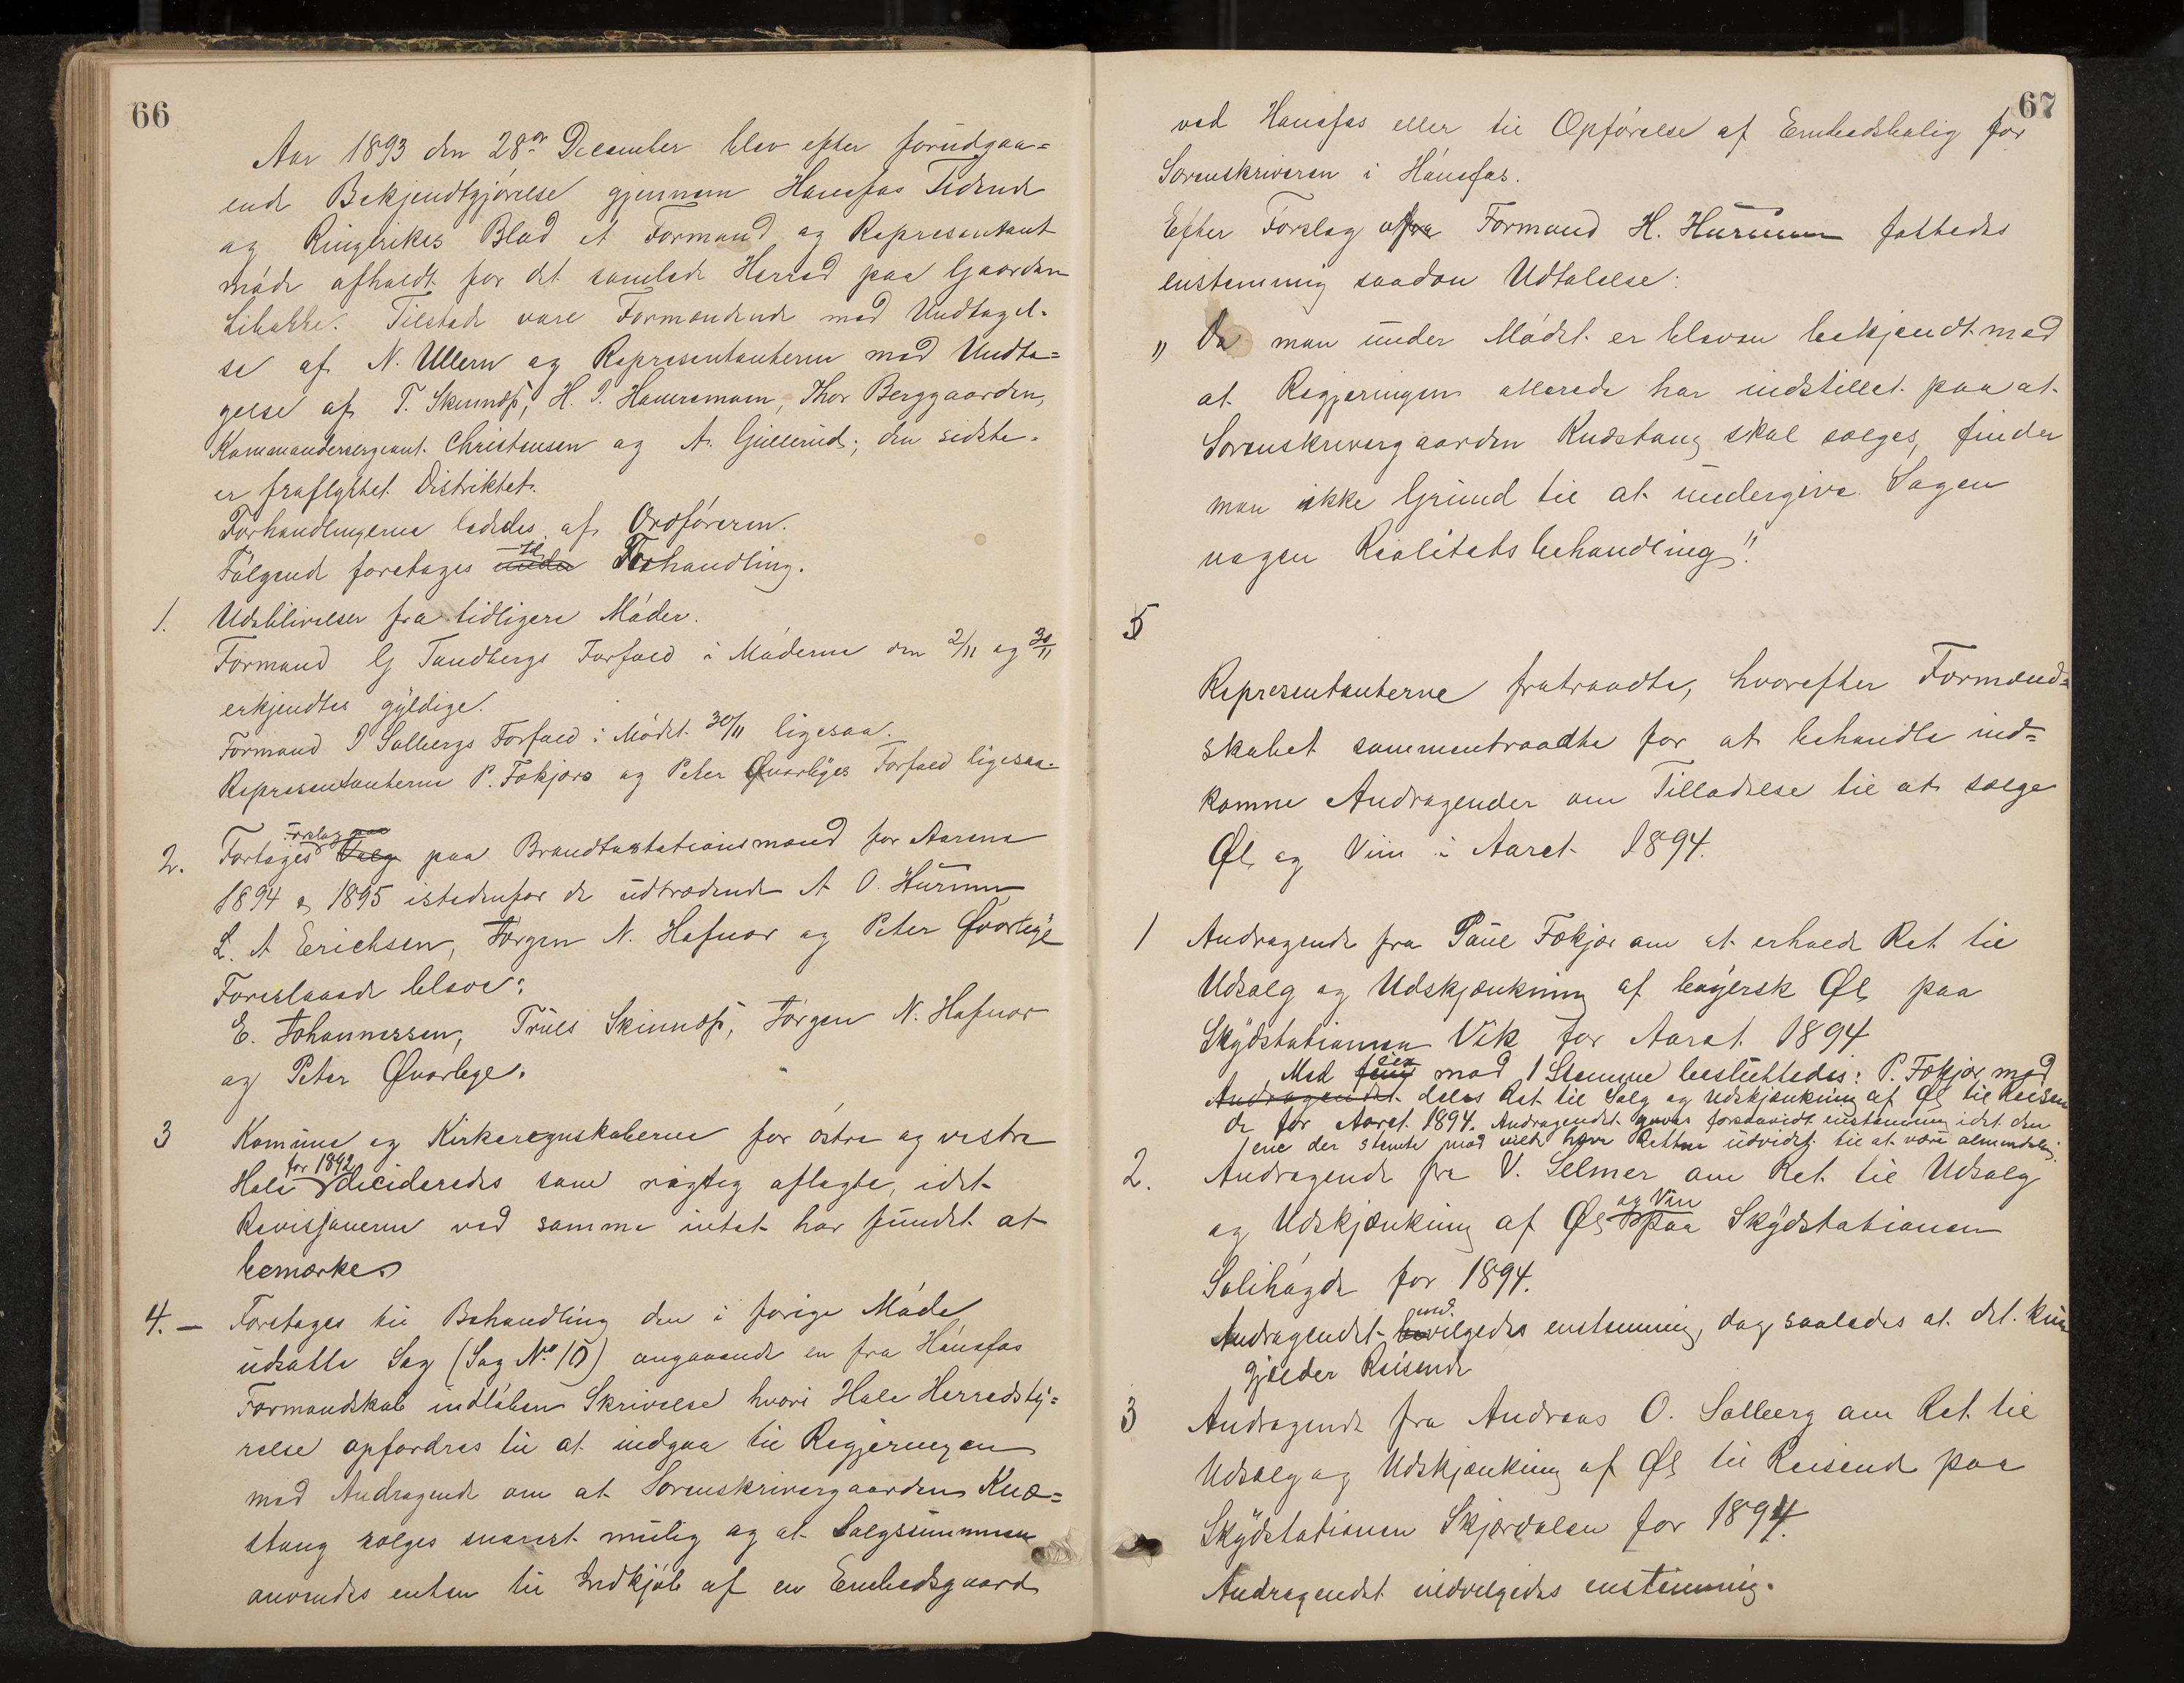 66
Aar 1893 den 28de December blev efter forudgaa=
ende Bekjendtgjørelse gjennem Hønefos Tidende
og Ringerikes Blad et Formand og Representant
møde afholdt for det samlede Herred paa Gaarden
Libakke. Tilstede vare Formændene med Undtagel-
se af N. Ullern og Representanterne med Undta=
gelse af T. Skinnæs, H. J. Haversmoen, Thor Berggaarden,
Kommandersergeant Christensen og A. Gullerud; den sidste
er fraflyttet Distriktet.
Forhandlingerne lededes af Ordføreren.
Følgende foretages under til Forhandling.
1. Udeblivelser fra tidligere Møder.
Formand G Tandbergs Forfald i Møderne den 2/11 og 30/11
erkjendtes gyldige.
Formand J Solbergs Forfald i Mødet 30/11 ligesaa.
Representanterne P. Fekjærs og Peter Qvarliges Forfald ligesaa.
2. Fortages Valg Forslag paa paa Brandtaxtationsmænd for Aarene
1894 & 1895 istedenfor de udtrædende A O. Hurum
L. A Erichsen, Jørgen N. Hafnor og Peter Qvarlige
Foreslaaede bleve:
E. Johannessen, Truls Skinnæs, Jørgen N. Hafnor
og Peter Qvarlege.
3 Komune og Kirkeregnskaberne for østre og vestre
Hole for 1892 decideredes som rigtig aflagte, idet
Revisjonerne ved samme intet har fundet at
bemærke.
4. — Foretages til Behandling den i forige Møde
udsatte Sag (Sag No 10) angaaende en fra Hønefos
Formandskab indløben Skrivelse hvori Hole Herredsty=
relse opfordres til at indgaa til Regjeringen
med Andragende om at Sorenskrivergaarden Knæ=
stang sælges snarest mulig og at Salgssummen
anvendes enten til Indkjøb af en Embedsgaard
67
ved Hønefos eller til Opførelse af Embedsbolig for
Sorenskriveren i Hønefos.
Efter Forslag af fra Formand H. Hurum fattedes
enstemmig saadan Udtalelse:
„ Da man under Mødet er bleven bekjendt med
at Regjeringen allerede har indstillet paa at
Sorenskrivergaarden Knæstang skal sælges, finder
man ikke Grund til at undergive Sagen
nogen Realitetsbehandling".
5
Representanterne fratraadte, hvorefter Formand=
skabet sammentraadte for at behandle ind=
komne Andragender om Tilladelse til at sælge
Øl og Vin i Aaret 1894.
1 Andragende fra Paul Fekjær om at erholde Ret til
Udsalg og Udskjænkning af bayersk Øl paa
Skydstationen Vik for Aaret 1894
Med fem sex mod 1 Stemme besluttedes: P. Fekjær med
Andragendet deles Ret til Salg og Udskjænkning af Øl til Reisen
de for Aaret 1894. Andragendet forsaavidt enstemmig idet den
ene der stemte mod vilde have Retten udvidet til at være almindelig.
2. Andragende fra V. Selmer om Ret til Udsalg
og Udskjænkning af Øl og Vin paa Skydstationen
Solihøgda for 1894.
Andragendet bevilgedes ind. enstemmig, dog saaledes at det kun
gjælder Reisende
3 Andragende fra Andreas O. Solberg om Ret til
Udsalg og Udskjænkning af Øl til Reisende paa
Skydstationen Skjærdalen for 1894.
Andragendet indvilgedes enstemmig.